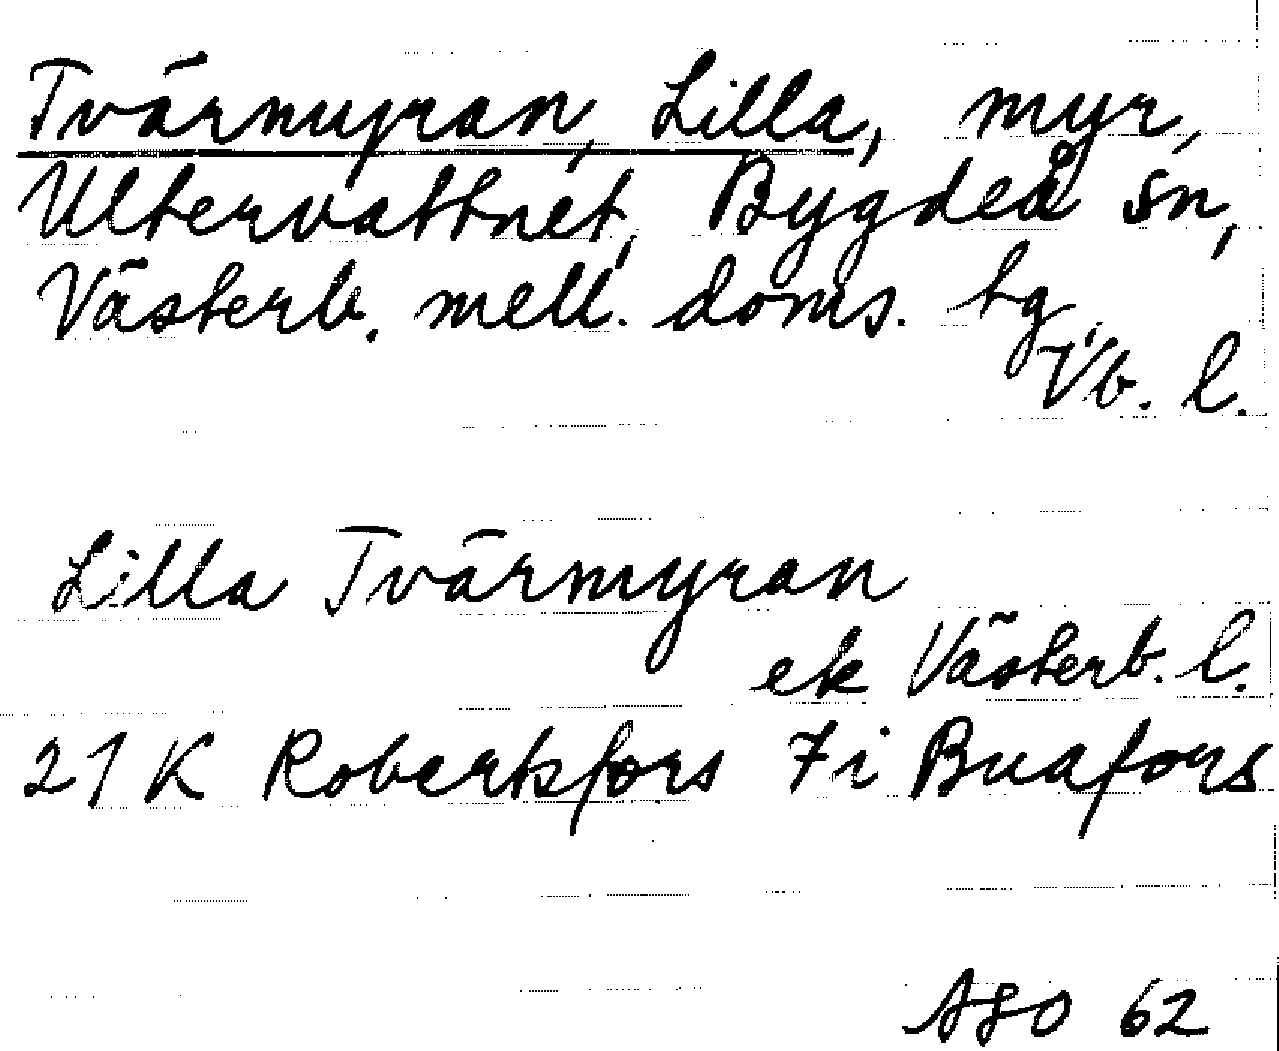 Tvärmyran, Lilla, myr,
Ultervattnet, Bygdeå sn,
Västerb. mell. doms. tg,
Vb. l.
Lilla Tvärmyran
ek Västerb. l.
21 K Robertsfors 7 i Buafors
ASO 62